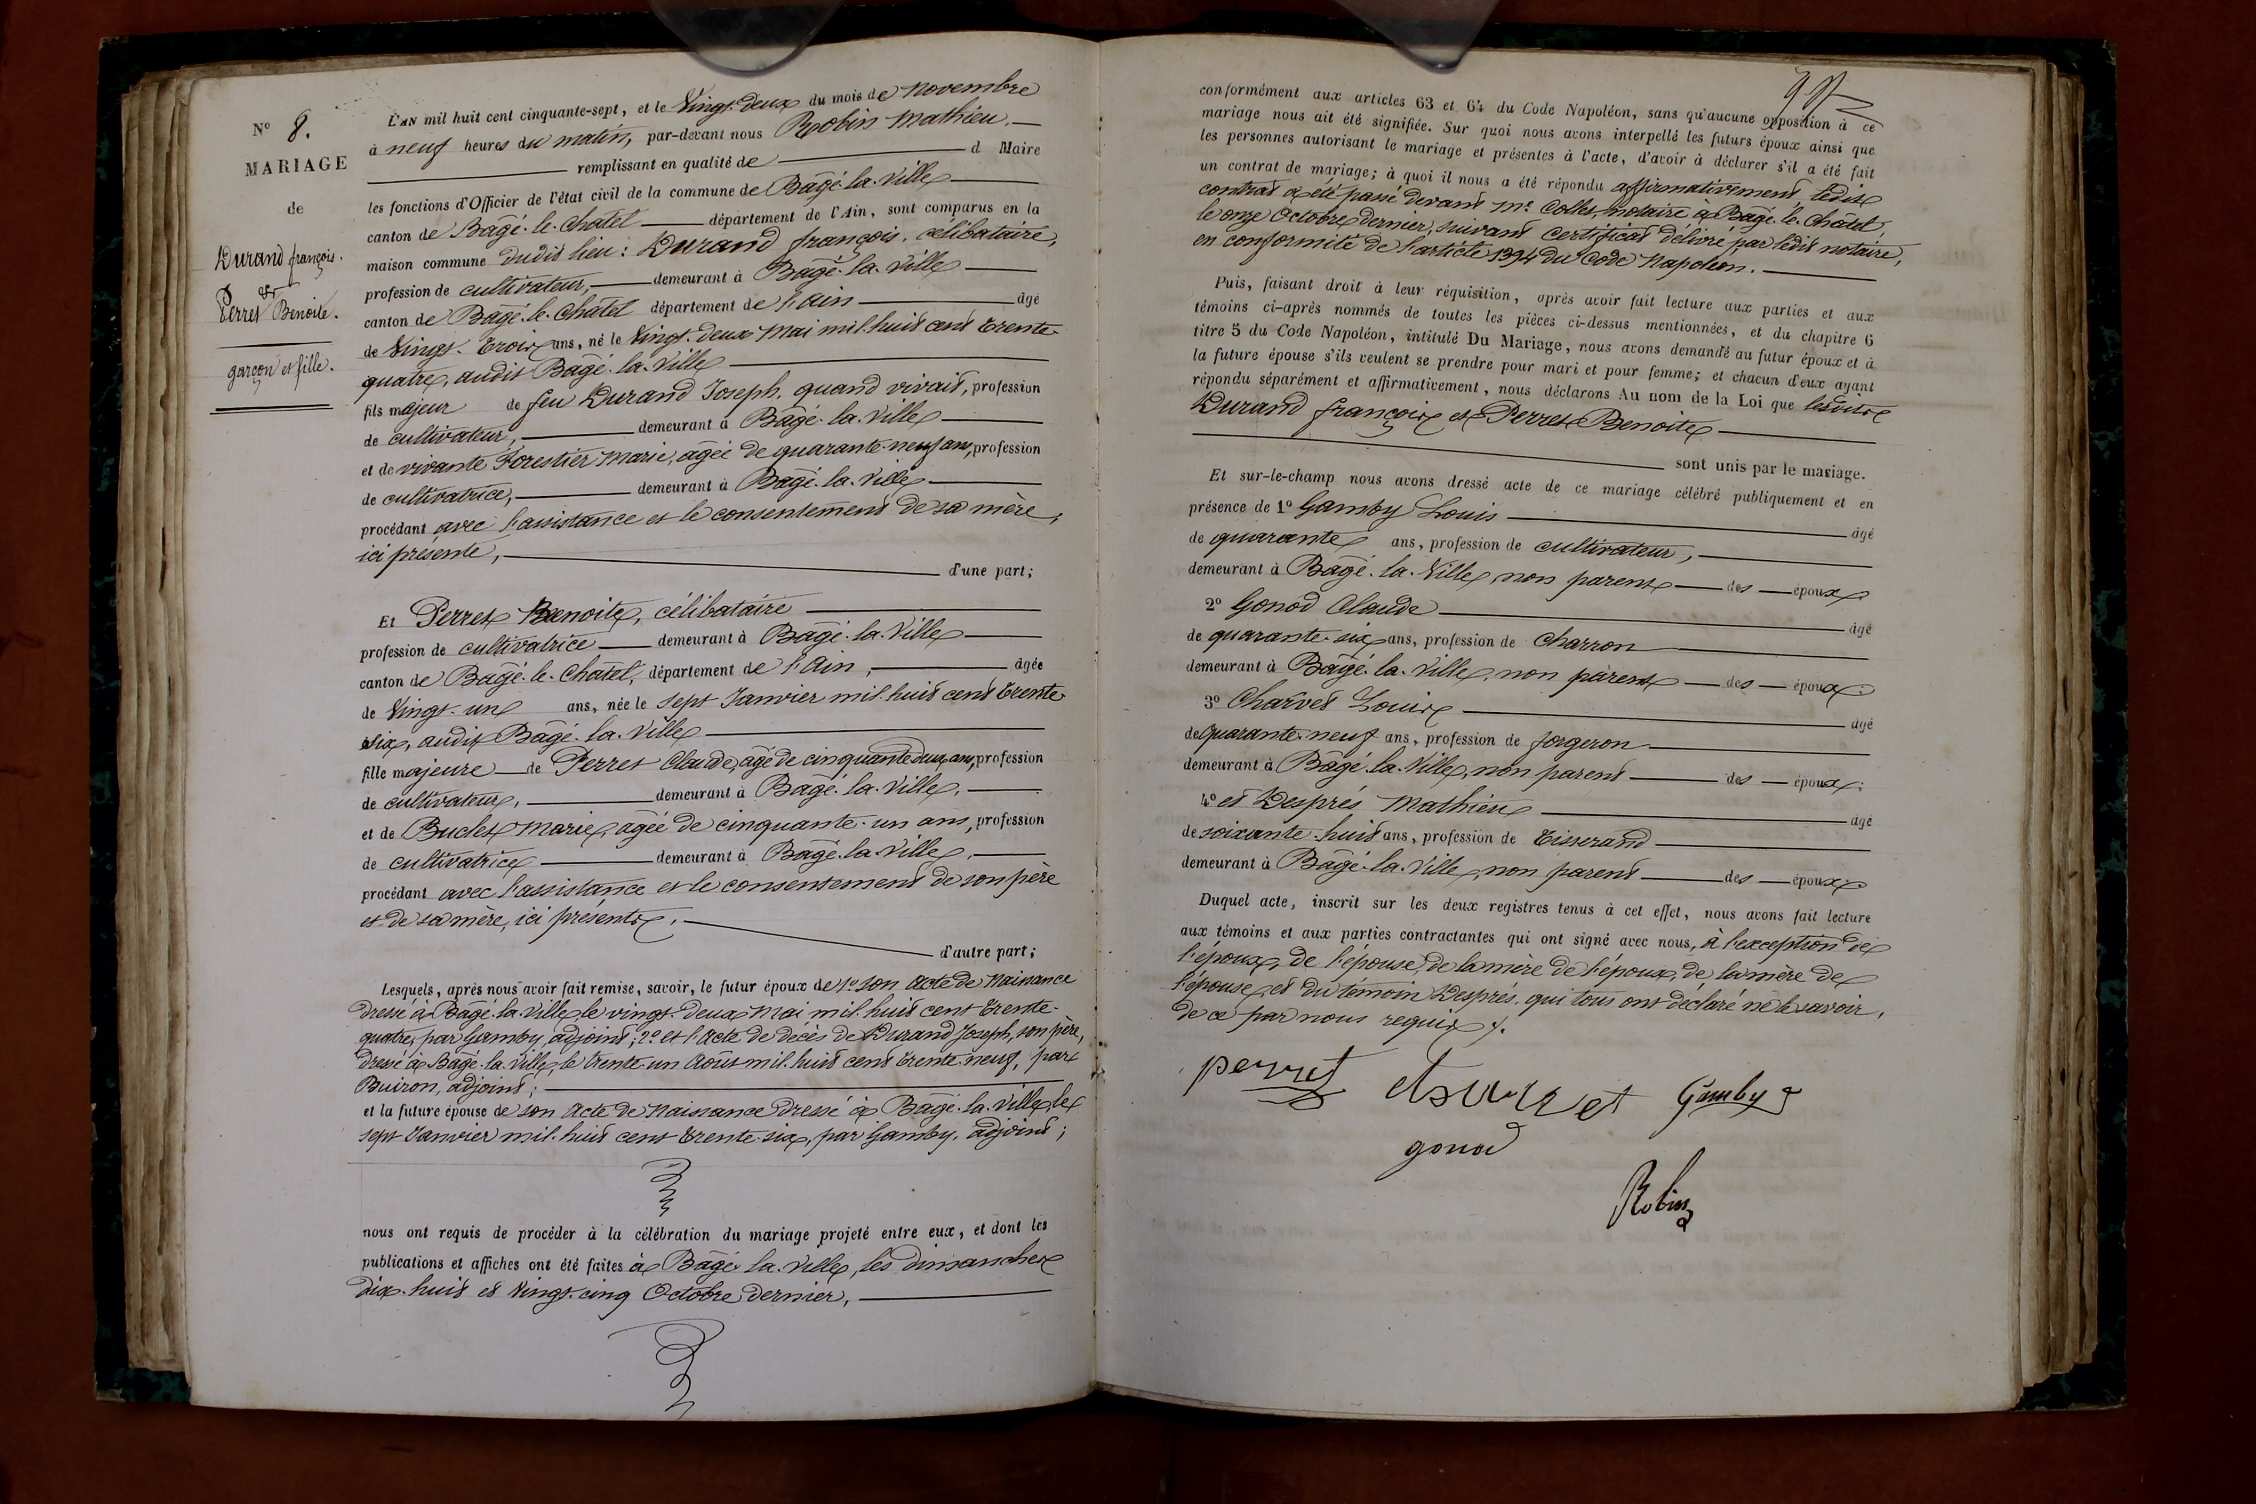 N° 8.
MARIAGE
de
Durand françois.
et
Perret Benoite.
garçon et fille.
L'AN mil huit cent cinquante-sept, et le Vingt-deux du mois de Novembre
à neuf heures du matin, par-devant nous Robin Mathieu,
remplissant en qualité de d Maire
les fonctions d'Officier de l'état civil de la commune de Bâgé-la-Ville
canton de Bâgé-le-Châtel département de l'Ain, sont comparus en la
maison commune dudit lieu : Durand françois, célibataire,
profession de cultivateur, demeurant à Bâgé-la-Ville
canton de Bâgé-le-Châtel département de l'ain âgé
de Vingt-trois ans, né le Vingt-deux Mai mil-huit cent trente-
quatre, audit Bâgé-la-Ville
fils majeur de feu Durand Joseph, quand vivait, profession
de cultivateur, demeurant à Bâgé-la-Ville
et de vivante Forestier Marie, âgée de quarante-neuf ans, profession
de cultivatrice, demeurant à Bâgé-la-Ville
procédant avec l'assistance et le consentement de sa mère,
ici présente,
d'une part;
Et Perret Benoite, célibataire
profession de cultivatrice demeurant à Bâgé-la-Ville
canton de Bâgé-le-Châtel, département de l'Ain, âgée
de Vingt-un ans, née le sept Janvier mil-huit cent trente-
six, audit Bâgé-la-Ville
fille majeure de Perret Claude, âgé de cinquante-deux ans, profession
de cultivateur, demeurant à Bâgé-la-Ville,
et de Buclet Marie, âgée de cinquante-un ans, profession
de cultivatrice demeurant à Bâgé-la-Ville,
procédant avec l'assistance et le consentement de son père
et de sa mère, ici présents,
d'autre part;
Lesquels, après nous avoir fait remise, savoir, le futur époux de 1° son Acte de Naissance
dressé à Bâgé-la-Ville le vingt-deux Mai mil-huit cent trente-
quatre, par Gamby, adjoint ; 2° et l'Acte de décès de Durand Joseph, son père,
dressé à Bâgé-la-Ville le trente-un Août mil-huit cent trente-neuf, par
Buiron, adjoint ;
et la future épouse de son Acte de Naissance dressé à Bâgé-la-Ville, le
sept Janvier mil-huit cent trente-six, par Gamby, adjoint ;
nous ont requis de procéder à la célébration du mariage projeté entre eux, et dont les
publications et affiches ont été faites à Bâgé-la-Ville, les dimanches
dix-huit et Vingt-cinq Octobre dernier,
conformément aux articles 63 et 64 du Code Napoléon, sans qu'aucune opposition à ce
mariage nous ait été signifiée. Sur quoi nous avons interpellé les futurs époux ainsi que
les personnes autorisant le mariage et présentes à l'acte, d'avoir à déclarer s'il a été fait
un contrat de mariage; à quoi il nous a été répondu affirmativement, ledit
contrat a été passé devant Me Collet, notaire à Bâgé-le-Châtel,
le onze Octobre dernier, suivant certificat délivré par ledit notaire,
en conformité de l'article 1394 du Code Napoléon.
Puis, faisant droit à leur réquisition, après avoir fait lecture aux parties et aux
témoins ci-après nommés de toutes les pièces ci-dessus mentionnées, et du chapitre 6
titre 5 du Code Napoléon, intitulé Du Mariage, nous avons demandé au futur époux et à
la future épouse s'ils veulent se prendre pour mari et pour femme; et chacun d'eux ayant
répondu séparément et affirmativement, nous déclarons Au nom de la Loi que lesdits
Durand françois et Perret Benoite
sont unis par le mariage.
Et sur-le-champ nous avons dressé acte de ce mariage célébré publiquement et en
présence de 1° Gamby Louis âgé
de quarante ans, profession de cultivateur,
demeurant à Bâgé-la-Ville, non parent des époux
2° Gonod Claude âgé
de quarante-six ans, profession de Charron
demeurant à Bâgé-la-Ville, non parent des époux ;
3° Charvet Louis âgé
de quarante-neuf ans, profession de forgeron
demeurant à Bâgé-la-Ville, non parent des époux ;
4° et Després Mathieu âgé
de soixante-huit ans, profession de tisserand
demeurant à Bâgé-la-Ville, non parent des époux
Duquel acte, inscrit sur les deux registres tenus à cet effet, nous avons fait lecture
aux témoins et aux parties contractantes qui ont signé avec nous, à l'exception de
l'époux, de l'épouse, de la mère de l'époux, de la mère de
l'épouse, et du témoin Després, qui tous ont déclaré ne le savoir,
de ce par nous requis.
perret Charvet Gamby
gonod
Robin